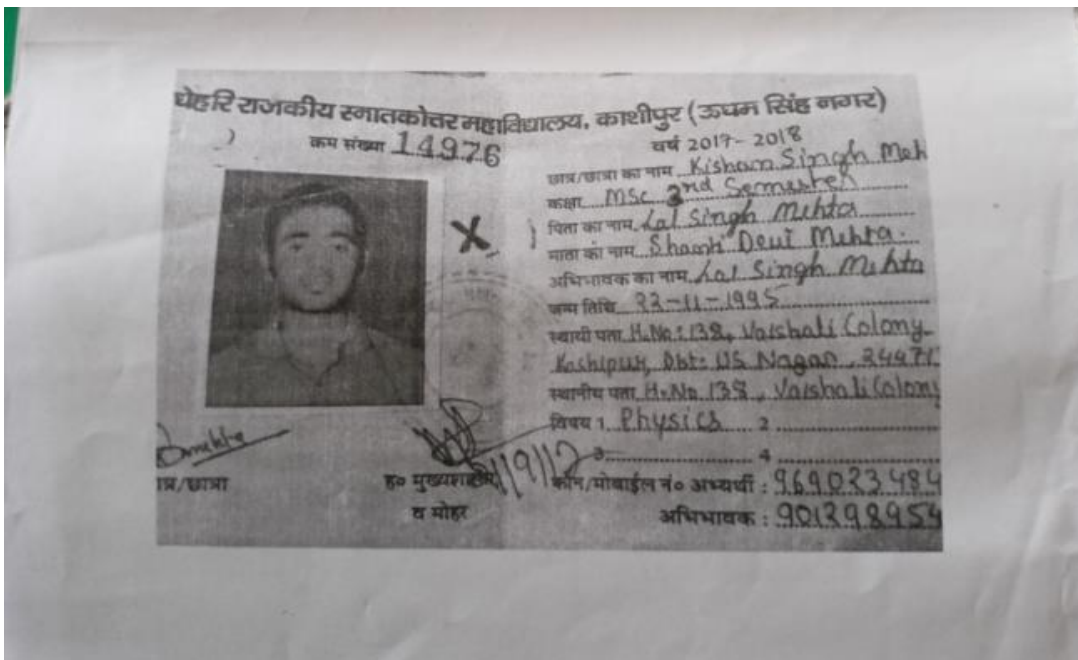 घेहरि राजकीय स्नातकोत्तर महाविद्यालय, काशीपुर (ऊधम सिंह नगर)
कम संख्या 14976
वर्ष 2017-2018
छात्र/छात्रा का नाम Kisham Singh Meh
कक्षा MSc 3nd Semester
पिता का नाम Lal Singh Mehta
माता का नाम Shanti Devi Mehta.
अभिभावक का नाम Lal Singh Mehta
जन्म तिथि 22-11-1995
स्थायी पता H.No:138, Vaishali Colony
Kashipur, Dbt: US Nagar 24471
स्थानीय पता H.No 138, Vaishali Colony
विषय 1. Physics 2
3 4
फोन/मोबाईल नं० अभ्यर्थी : 969023484
अभिभावक : 901298954
ात्र/छात्रा
ह० मुख्यशास्ता
व मोहर